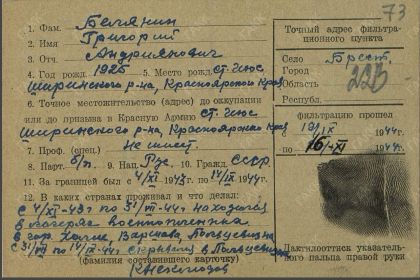 73
1. Фам. Белянин
2. Имя Григорий
3. Отч. Андриянович
4. Год рожд. 1925 5. Место рожд. ст. Июс
Ширинского р-на, Красноярского Края
6. Точное местожительство (адрес) до оккупации
или до призыва в Красную Армию ст. Июс
Ширинского р-на, Красноярского Края
7. Проф. (спец.) Не имеет
8. Парт. б/п. 9. Нац. Рус. 10. Гражд. СССР
11. За границей был с 4/XI-1943 г. по 14/IX 1944 г.
12. В каких странах проживал и что делал:
с 4/XI-43г по 31/VII-44г находился
в лагерях военнопленных
в гор. Холм, Варшава,
с 31/VII по 14/IX-44г
(фамилия составившего карточку)
Точный адрес фильтра-
ционного пункта
Село Брест,
Город
Область
Республ.
225
фильтрацию прошел
1944 г.
по 16/XI 1944 г.
Дактилоотиск указатель-
ного пальца правой руки